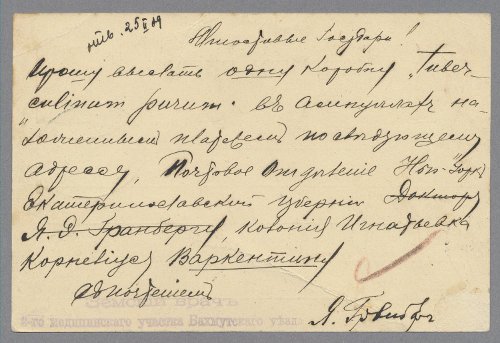 отв. 25 V 09
Милостивые Государи!
Прошу выслать одну коробку „Tuber-
culinum purum" въ ампуллахъ на-
ложеннымъ платежемъ по слѣдующему
адрессу, Почтовое Отдѣленіе Нью-Іоркъ
Екатеринославской губерніи Доктору
Я. Д. Гранбергу, колонія Игнатьевка
Корнеліусу Варкентину
Съ почтеніемъ
Земскій врачъ
2-го медицинскаго участка Бахмутскаго уѣзда
Я.